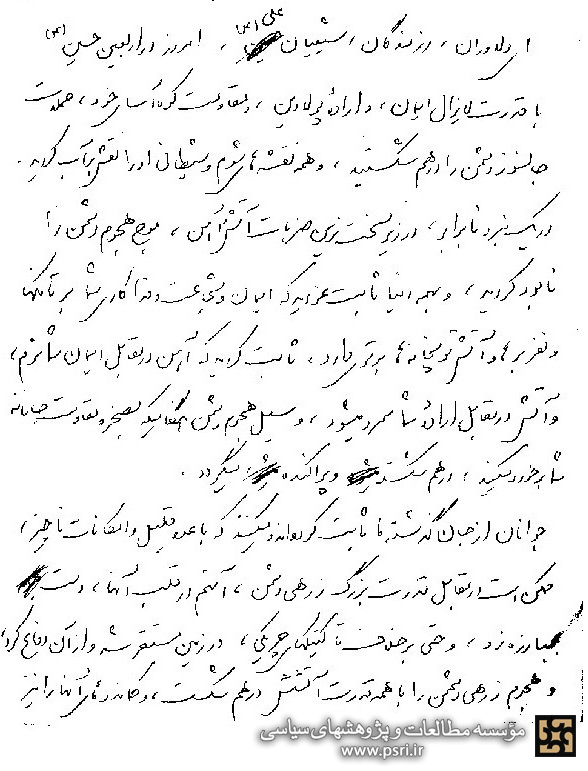 ای دلاوران، رزمندگان، شیعیان علی (ع)، امروز در اربعین حسین (ع)
با قدرت لایزال ایمان، و ارادهٔ پولادین، و مقاومت کوه آسای خود، حملات
جانسوز دشمن را درهم شکستید، و همه نقشه‌های شوم و شیطانی او را نقش بر آب کردید.
در یک نبرد نابرابر، در زیر سخت‌ترین ضربات آتش و آهن، موج هجوم دشمن را
نابود کردید، و بهمه دنیا ثابت نمودید که ایمان و شجاعت و فداکاری شما بر تانکها
و نفربرها و آتش توپخانه‌ها برتری دارد، ثابت کردید که آهن در مقابل ایمان شما نرم،
و آتش در مقابل ارادهٔ شما سرد میشود، و سیل هجوم دشمن هنگامیکه بصخره مقاومت جانانه
شما برخورد میکند، درهم شکسته و پراکنده میگردد.
جوانان از جان گذشتهٔ ما ثابت کرده‌اند و میکنند که با عده قلیل و امکانات ناچیز،
ممکن است در مقابل قدرت بزرگ زرهی دشمن، آنهم در قلب آنها، دست
بمبارزه زد، و حتی برخلاف تاکتیکهای چریکی، در زمین مستقر شد و از آن دفاع کرد،
و هجوم زرهی دشمن را با همه قدرت آتشش درهم شکست، و کماندوهای آنها را نیز
مؤسسه مطالعات و پژوهشهای سیاسی
www.psri.ir